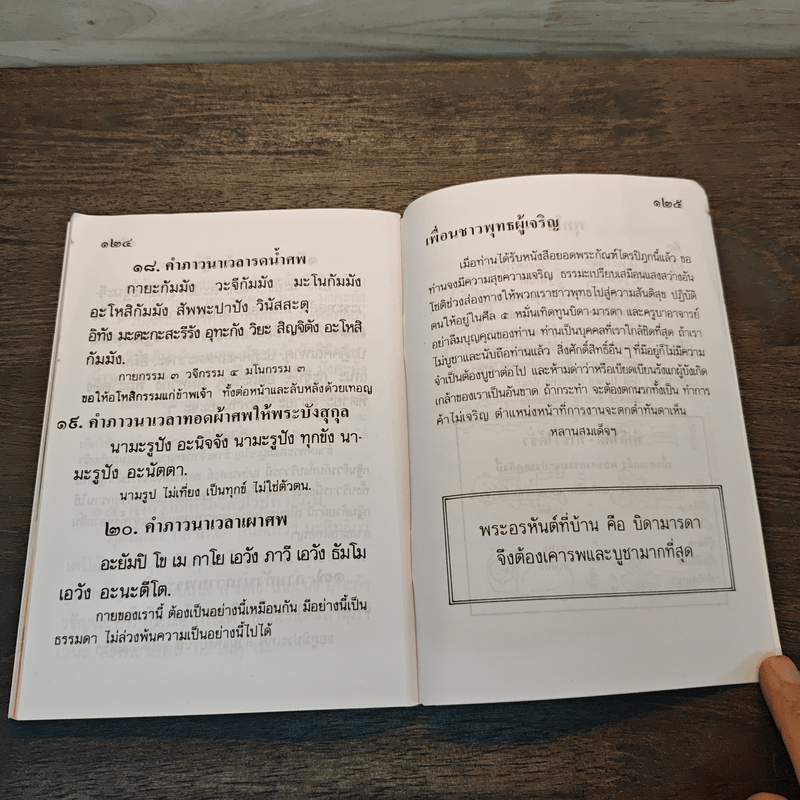 ๑๒๔
๑๘. คำภาวนาเวลารดน้ำศพ
กายะกัมมัง วะจีกัมมัง มะโนกัมมัง
อะโหสิกัมมัง สัพพะปาปัง วินัสสะตุ
อิทัง มะตะกะสะรีรัง อุทะกัง วิยะ สิญจิตัง อะโหสิ
กัมมัง.
กายกรรม ๓ วจีกรรม ๔ มโนกรรม ๓
ขอให้อโหสิกรรมแก่ข้าพเจ้า ทั้งต่อหน้าและลับหลังด้วยเทอญ
๑๙. คำภาวนาเวลาทอดผ้าศพให้พระบังสุกุล
นามะรูปัง อะนิจจัง นามะรูปัง ทุกขัง นา-
มะรูปัง อะนัตตา.
นามรูป ไม่เที่ยง เป็นทุกข์ ไม่ใช่ตัวตน.
๒๐. คำภาวนาเวลาเผาศพ
อะยัมปิ โข เม กาโย เอวัง ภาวี เอวัง ธัมโม
เอวัง อะนะตีโต.
กายของเรานี้ ต้องเป็นอย่างนี้เหมือนกัน มีอย่างนี้เป็น
ธรรมดา ไม่ล่วงพ้นความเป็นอย่างนี้ไปได้
๑๒๕
เพื่อนชาวพุทธผู้เจริญ
เมื่อท่านได้รับหนังสือยอดพระกัณฑ์ไตรปิฎกนี้แล้ว ขอ
ท่านจงมีความสุขความเจริญ ธรรมะเปรียบเสมือนแสงสว่างอัน
โชติช่วงส่องทางให้พวกเราชาวพุทธไปสู่ความสันติสุข ปฏิบัติ
ตนให้อยู่ในศีล ๕ หมั่นเทิดทูนบิดา-มารดา และครูบาอาจารย์
อย่าลืมบุญคุณของท่าน ท่านเป็นบุคคลที่เราใกล้ชิดที่สุด ถ้าเรา
ไม่บูชาและนับถือท่านแล้ว สิ่งศักดิ์สิทธิ์อื่น ๆ ที่มีอยู่ก็ไม่มีความ
จำเป็นต้องบูชาต่อไป และห้ามด่าว่าหรือเบียดเบียนรังแกผู้บังเกิด
เกล้าของเราเป็นอันขาด ถ้ากระทำ จะต้องตกนรกทั้งเป็น ทำการ
ค้าไม่เจริญ ตำแหน่งหน้าที่การงานจะตกต่ำทันตาเห็น
หลานสมเด็จฯ
พระอรหันต์ที่บ้าน คือ บิดามารดา
จึงต้องเคารพและบูชามากที่สุด